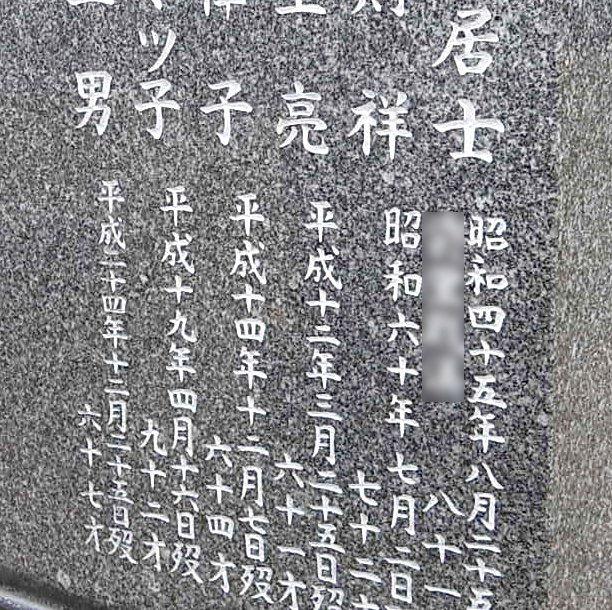 居士
昭和四十五年八月二十五
八十一
祥
昭和六十年七月二日
七十二才
亮
平成十二年三月二十五日歿
六十一才
子
平成十四年十二月七日歿
六十四才
ツ子
平成十九年四月十六日歿
九十二才
男
平成二十四年十二月二十五日歿
六十七才